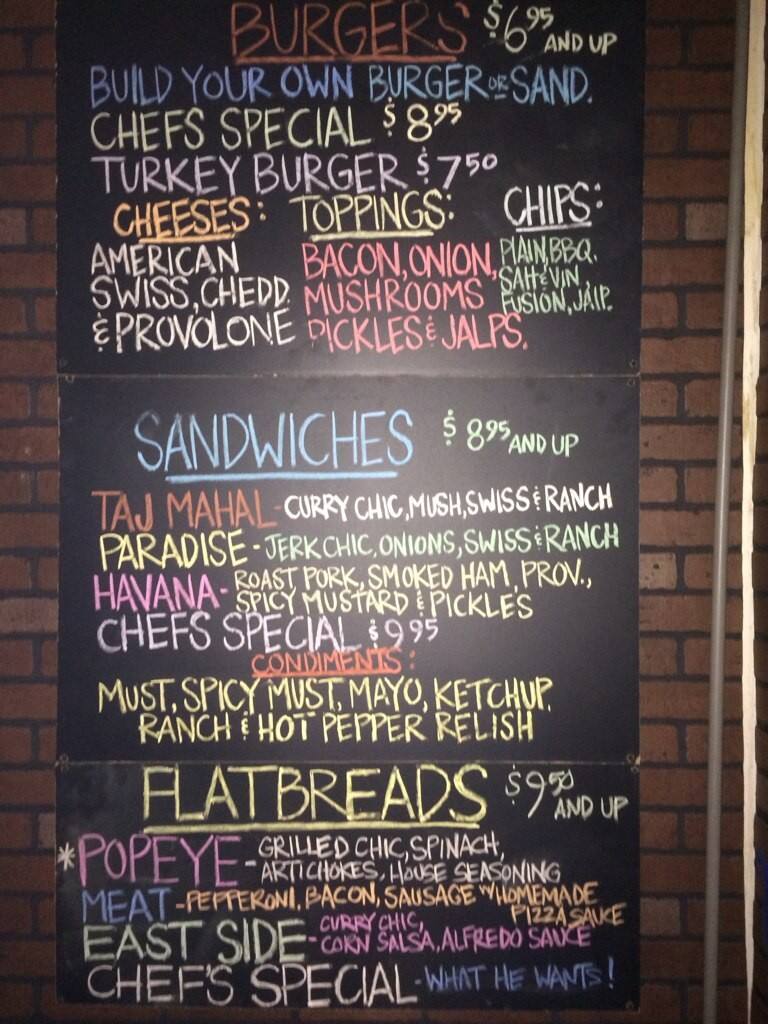 BURGERS $6.95 AND UP
BUILD YOUR OWN BURGER OR SAND.
CHEFS SPECIAL $8.95
TURKEY BURGER $7.50
CHEESES:
AMERICAN
SWISS, CHEDD
& PROVOLONE
TOPPINGS:
BACON, ONION,
MUSHROOMS
PICKLES & JALPS.
CHIPS:
PLAIN, BBQ,
SALT & VIN,
FUSION, JALP.
SANDWICHES $8.95 AND UP
TAJ MAHAL - CURRY CHIC, MUSH, SWISS & RANCH
PARADISE - JERK CHIC, ONIONS, SWISS & RANCH
HAVANA - ROAST PORK, SMOKED HAM, PROV.,
SPICY MUSTARD & PICKLES
CHEFS SPECIAL $9.95
CONDIMENTS:
MUST, SPICY MUST, MAYO, KETCHUP,
RANCH & HOT PEPPER RELISH
FLATBREADS $9.50 AND UP
*POPEYE - GRILLED CHIC, SPINACH,
ARTICHOKES, HOUSE SEASONING
MEAT - PEPPERONI, BACON, SAUSAGE W/ HOMEMADE
PIZZA SAUCE
EAST SIDE - CURRY CHIC,
CORN SALSA, ALFREDO SAUCE
CHEF'S SPECIAL - WHAT HE WANTS!